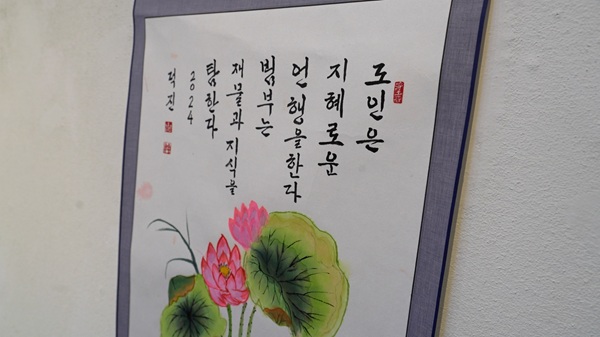 도인은
지혜로운
언행을한다
범부는
재물과지식을
탐한다
2024
덕진